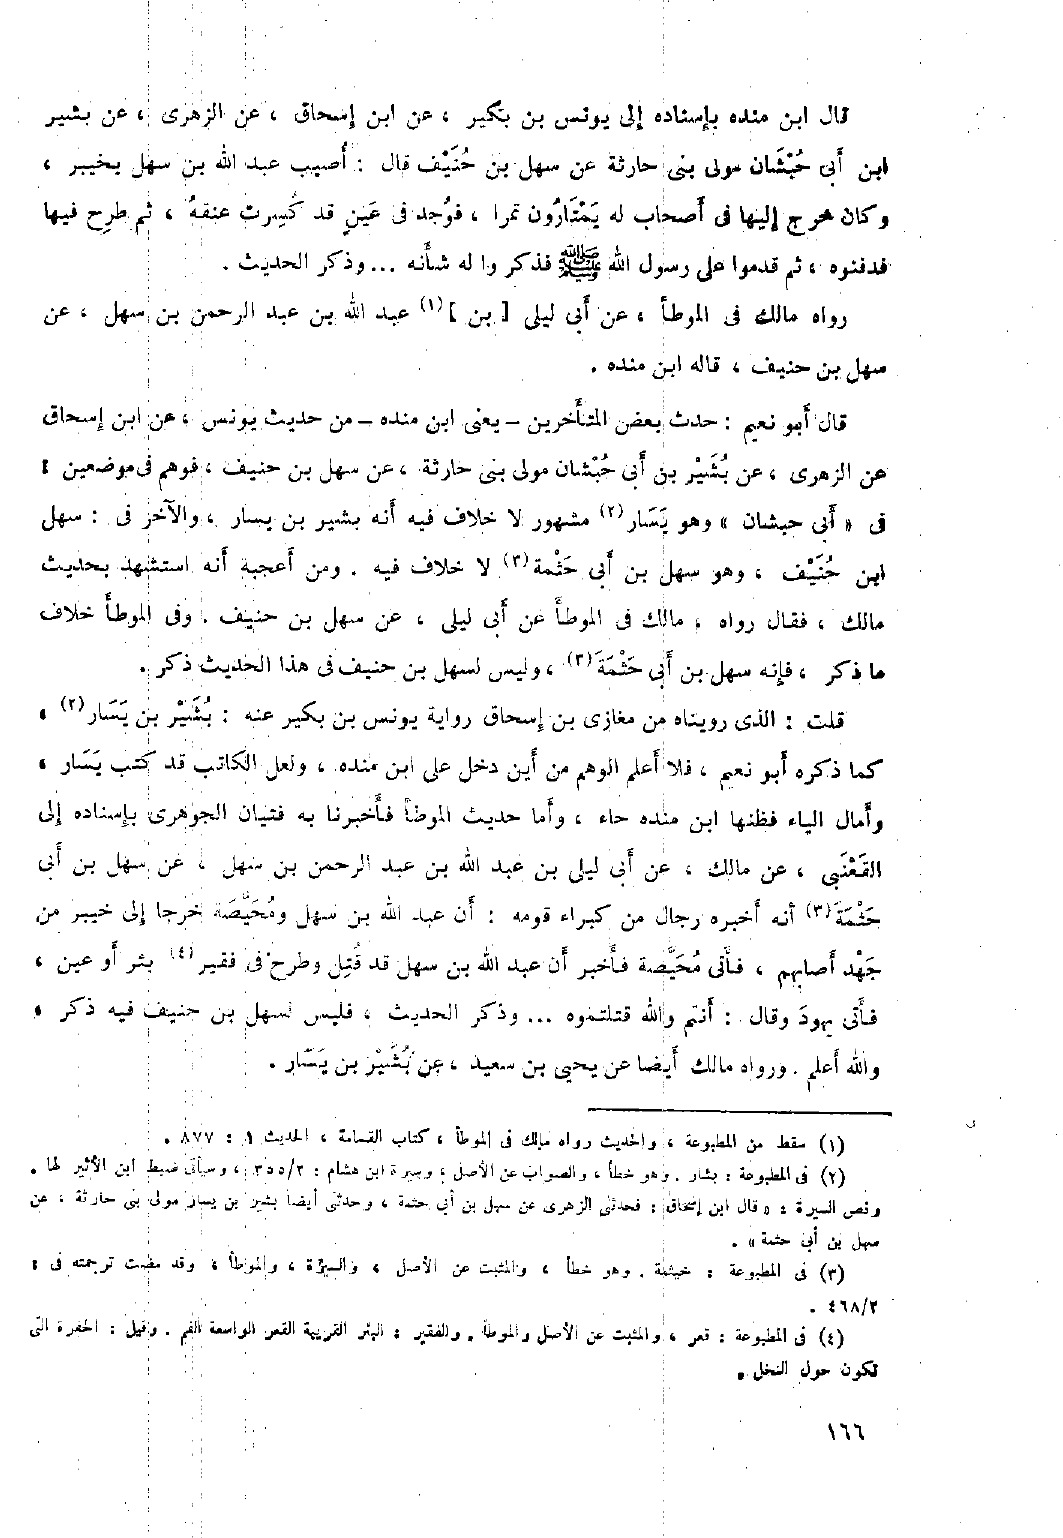 قال ابن منده بإسناده إلى يونس بن بكير ، عن ابن إسحاق ، عن الزهرى ، عن بشير
ابن أبى حُبْشَان مولى بنى حارثة عن سهل بن حُنَيْف قال : أُصيب عبد الله بن سهل بخيبر ،
وكان خرج إليها فى أصحاب له يَمْتَارُون تمرا ، فوُجد فى عَينٍ قد كُسِرت عنقهُ ، ثم طرِح فيها
فدفنوه ، ثم قدموا على رسول الله ﷺ فذكر وا له شأنه ... وذكر الحديث .
رواه مالك فى الموطأ ، عن أبى ليلى [ بن ](١) عبد الله بن عبد الرحمن بن سهل ، عن
سهل بن حنيف ، قاله ابن منده .
قال أبو نعيم : حدث بعض المتأخرين – يعنى ابن منده – من حديث يونس ، عن ابن إسحاق
عن الزهرى ، عن بُشَيْر بن أبى حُبْشان مولى بنى حارثة ، عن سهل بن حنيف ، فوهم فى موضعين :
فى « أبى حبشان » وهو يَسَار(٢) مشهور لا خلاف فيه أنه بشير بن يسار ، والآخر فى : سهل
ابن حُنَيْف ، وهو سهل بن أبى حَثْمة(٣) لا خلاف فيه . ومن أعجبه أنه استشهد بحديث
مالك ، فقال رواه ، مالك فى الموطأ عن أبى ليلى ، عن سهل بن حنيف . وفى الموطأ خلاف
ما ذكر ، فإنه سهل بن أبى حَثْمَةَ(٣) ، وليس لسهل بن حنيف فى هذا الحديث ذكر .
قلت : الذى رويناه من مغازى بن إسحاق رواية يونس بن بكير عنه : بُشَيْر بن يَسَار(٢) ،
كما ذكره أبو نعيم ، فلا أعلم الوهم من أين دخل على ابن منده ، ولعل الكاتب قد كتب يَسَار ،
وأمال الياء فظنها ابن منده حاء ، وأما حديث الموطأ فأخبرنا به فتيان الجوهرى بإسناده إلى
القَعْنَبى ، عن مالك ، عن أبى ليلى بن عبد الله بن عبد الرحمن بن سهل ، عن سهل بن أبى
حَثْمَة(٣) أنه أخبره رجال من كبراء قومه : أن عبد الله بن سهل ومُحَيِّصَة خرجا إلى خيبر من
جَهْد أصابهم ، فأتى مُحَيِّصة فأخبر أن عبد الله بن سهل قد قُتِل وطرح فى فقير(٤) بئر أو عين ،
فأتى يهودَ وقال : أنتم والله قتلتموه ... وذكر الحديث ، فليس لسهل بن حنيف فيه ذكر ،
والله أعلم . ورواه مالك أيضا عن يحيى بن سعيد ، عن بُشَيْر بن يَسَار .
(١) سقط من المطبوعة ، والحديث رواه مالك فى الموطأ ، كتاب القسامة ، الحديث ١ : ٨٧٧ .
(٢) فى المطبوعة : بشار . وهو خطأ ، والصواب عن الأصل ، وسيرة ابن هشام : ٣٥٥/٢ ، وسيأتى ضبط ابن الأثير لها .
ونص السيرة : « قال ابن إسحاق : فحدثنى الزهرى عن سهل بن أبى حثمة ، وحدثنى أيضاً بشير بن يسار مولى بنى حارثة ، عن
سهل بن أبى حثمة » .
(٣) فى المطبوعة : خيثمة . وهو خطأ ، والمثبت عن الأصل ، والسيرة ، والموطأ ، وقد مضت ترجمته فى :
٤٦٨/٢ .
(٤) فى المطبوعة : قعر ، والمثبت عن الأصل والموطأ . والفقير : البئر القريبة القعر الواسعة الفم . وقيل : الحفرة التى
تكون حول النخل .
١٦٦